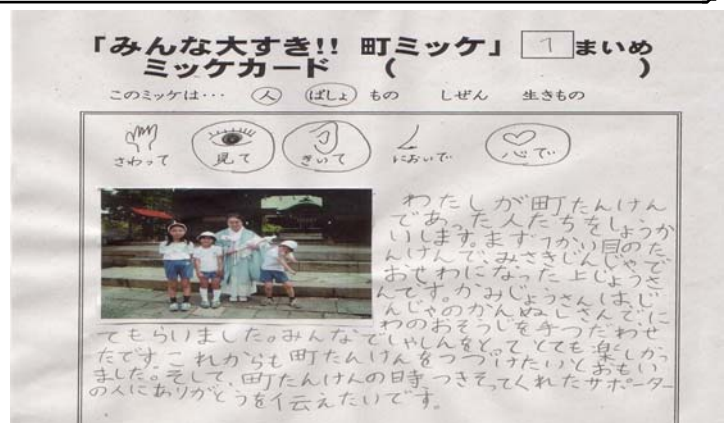 「みんな大すき!! 町ミッケ」 1 まいめ
ミッケカード ( )
このミッケは・・・ 人 ばしょ もの しぜん 生きもの
さわって 見て きいて においで 心で
わたしが町たんけん
であった人たちをしょうか
いします。まず1かい目のた
んけんで、みさきじんじゃで
おせわになった上じょうさ
んです。かみじょうさんはじ
んじゃのかんぬしさんでに
わのおそうじを手つだわせ
てもらいました。みんなでしゃしんをとってとても楽しかっ
たです。これからも町たんけんをつづけたいとおもい
ました。そして、町たんけんの日寺つきそってくれたサポーター
の人にありがとうを伝えたいです。